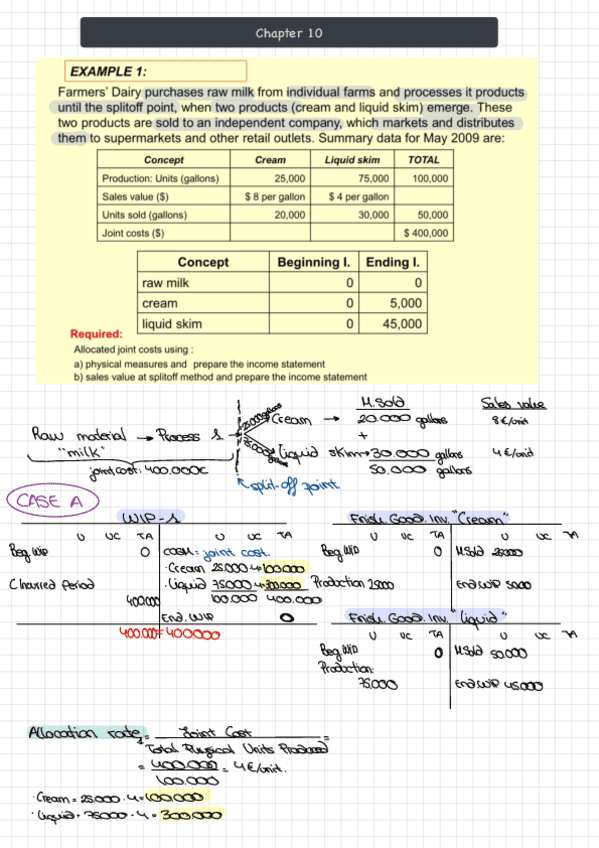 Chapter 10
EXAMPLE 1:
Farmers' Dairy purchases raw milk from individual farms and processes it products
until the splitoff point, when two products (cream and liquid skim) emerge. These
two products are sold to an independent company, which markets and distributes
them to supermarkets and other retail outlets. Summary data for May 2009 are:
Concept Cream Liquid skim TOTAL
Production: Units (gallons) 25,000 75,000 100,000
Sales value ($) $ 8 per gallon $ 4 per gallon
Units sold (gallons) 20,000 30,000 50,000
Joint costs ($) $ 400,000
Concept Beginning I. Ending I.
raw milk 0 0
cream 0 5,000
liquid skim 0 45,000
Required:
Allocated joint costs using :
a) physical measures and prepare the income statement
b) sales value at splitoff method and prepare the income statement
M.Sold Sales value
Raw material → Process 1 → 25000 gallons Cream → 20.000 gallons 8€/unit
"milk" +
75000 gallons Liquid skim → 30.000 gallons 4€/unit
joint cost: 400.000€ 50.000 gallons
split-off point
CASE A
WIP-1 Finish. Good. Inv. "Cream"
U UC TA U UC TA U UC TA U UC TA
Beg. WIP 0 COGM = joint cost. Beg WIP 0 M.Sold 25000
· Cream 25.000·4=100.000
C Incurred Period · Liquid 75000·4=300.000 Production 25000 End WIP 5000
400.000 100.000 400.000
End. WIP 0 Finish. Good. Inv. "liquid"
400.000 = 400000 U UC TA U UC TA
Beg WIP 0 M.Sold 50.000
Production:
75.000 End WIP 45000
Allocation rate = Joint Cost =
Total Physical Units Produced
= 400.000 = 4€/unit.
100.000
· Cream = 25000 · 4 = 100.000
· Liquid = 75000 · 4 = 300.000